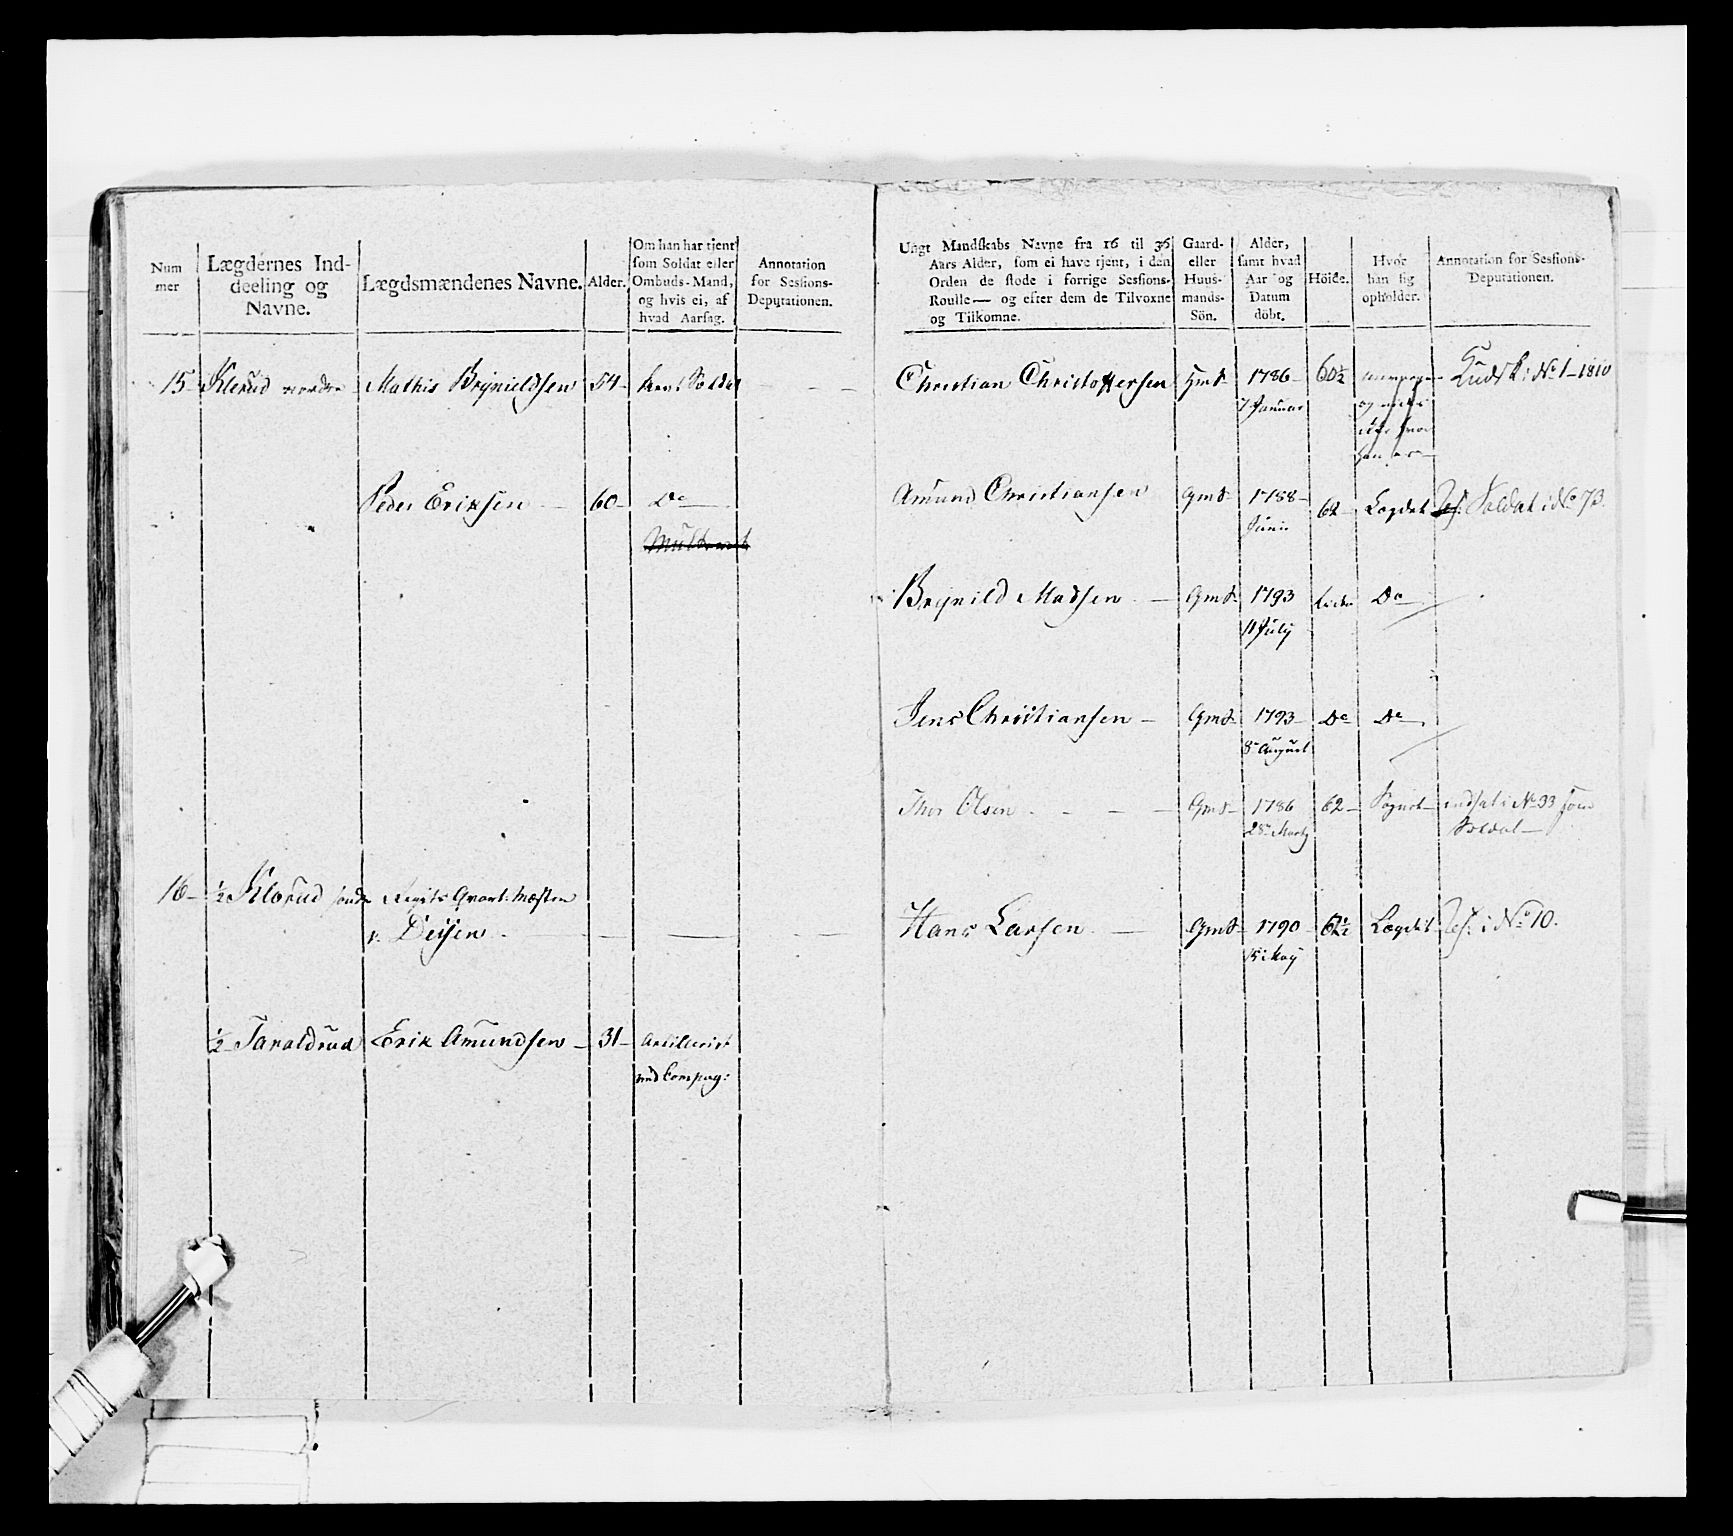 Num
mer
Lægdernes Ind-
deeling og
Navne.
Lægdsmændenes Navne.
Alder.
Om han har tjent
som Soldat eller
Ombuds-Mand,
og hvis ei, af
hvad Aarsag.
Annotation
for Sessions-
Deputationen.
15 Klerud nordre Mathis Brynieldsen 54
Peder Eriksen 60 Do
16 ½ Klorud Regits Qvart: Mæster
v. Deisen
½ Taraldrud Erik Amundsen 31 Artillerist
ved Compag:
Ungt Mandskabs Navne fra 16 til 36
Aars Alder, som ei have tjent, i den
Orden de stode i forrige Sessions-
Roulle— og efter dem de Tilvoxne
og Tilkomne.
Gaard-
eller
Huus-
mands-
Sön.
Alder,
samt hvad
Aar og
Datum
döbt.
Höide.
Hvor
han sig
opholder.
Annotation for Sessions-
Deputationen.
Christian Christoffersen HmS 1786 60½ Kudsk i No 1-1810
7 Januar
Amund Christiansen GmS 1788 62 Lægdet Soldat i No 73.
Junii
Brynild Madsen GmS 1793 Do
11 July
Jens Christiansen GmS 1793 Do Do
8 August
Thor Olsen GmS 1786 62 Sognet indsat i No 33 som
28 Martj Soldat
Hans Larsen GmS 1790 Lægdet i No 10.
15 May